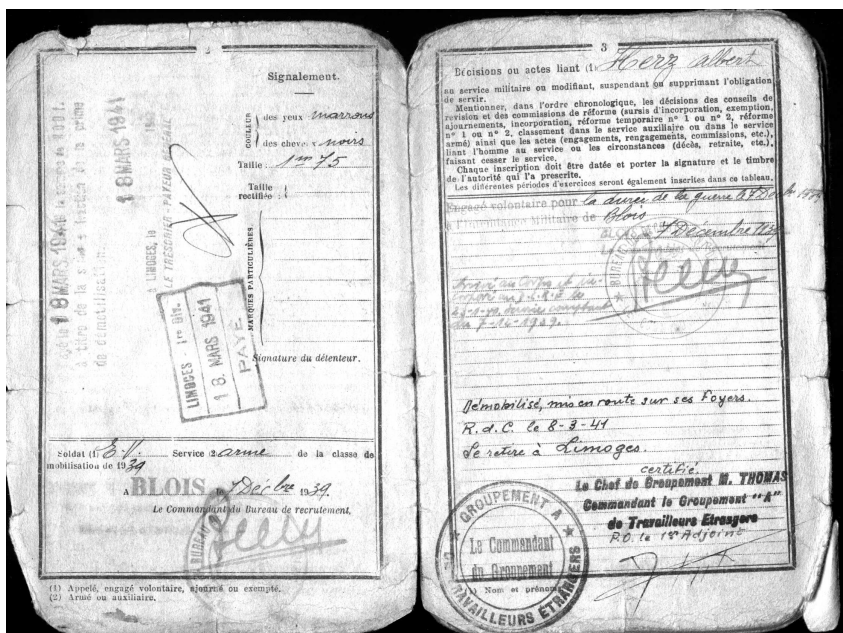 Signalement.
COULEUR
des yeux marrons
des chev. noirs
Taille : 1m 75
Taille
rectifiée :
MARQUES PARTICULIÈRES
Signature du détenteur.
18 MARS 1941
à titre de la prime
de démobilisation
18 MARS 1941
à LIMOGES, le
LE TRESORIER-PAYEUR GENERAL
LIMOGES - 1re Div.
18. MARS 1941
PAYE
Soldat (1) E.V. Service 2 armé de la classe de
mobilisation de 1939
A BLOIS le 7 Décbre 1939.
Le Commandant du Bureau de recrutement,
BUREAU
(1) Appelé, engagé volontaire, ajourné ou exempté.
(2) Armé ou auxiliaire.
3
Décisions ou actes liant (1) Herz Albert
au service militaire ou modifiant, suspendant ou supprimant l'obligation
de servir.
Mentionner, dans l'ordre chronologique, les décisions des conseils de
revision et des commissions de réforme (sursis d'incorporation, exemption,
ajournements, incorporation, réforme temporaire n° 1 ou n° 2, réforme
n° 1 ou n° 2, classement dans le service auxiliaire ou dans le service
armé) ainsi que les actes (engagements, rengagements, commissions, etc.),
liant l'homme au service ou les circonstances (décès, retraite, etc.),
faisant cesser le service.
Chaque inscription doit être datée et porter la signature et le timbre
de l'autorité qui l'a prescrite.
Les différentes périodes d'exercices seront également inscrites dans ce tableau.
Engagé volontaire pour la durée de la guerre le 7 Décbre 1939
à l'Intendance Militaire de Blois
7 Décembre 1939
Arrivé au Corps et in-
du 7-12-1939.
Démobilisé, mis en route sur ses Foyers.
R.d.C. le 8-3-41
Se retire à Limoges.
certifié.
Le Chef de Groupement M. THOMAS
Commandant le Groupement "A"
de Travailleurs Etrangers
P.O. le 1er Adjoint
GROUPEMENT A
Le Commandant
du Groupement
DE TRAVAILLEURS ÉTRANGERS
Nom et prénoms